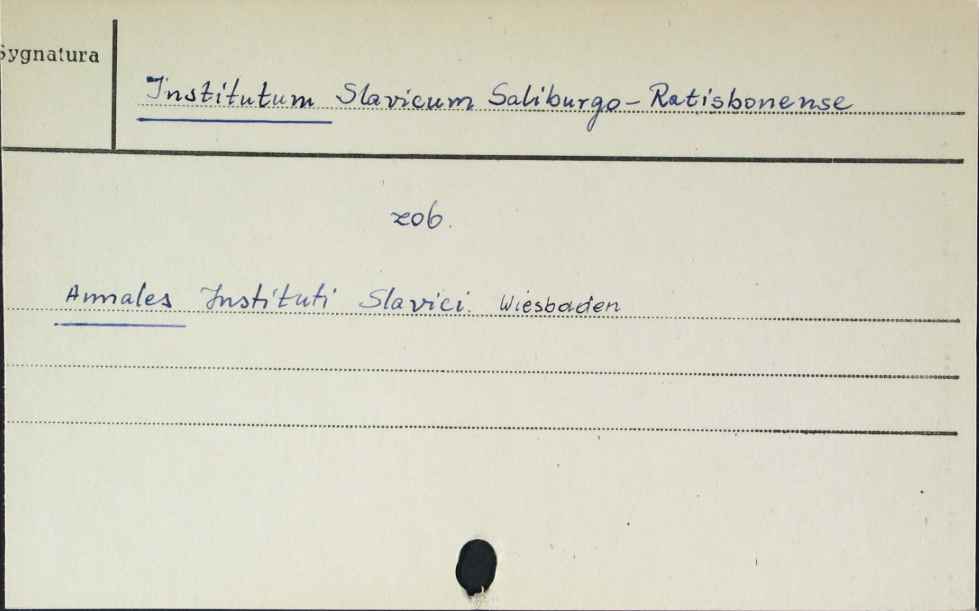 Sygnatura
Institutum Slavicum Saliburgo-Ratisbonense
zob.
Annales Instituti Slavici. Wiesbaden